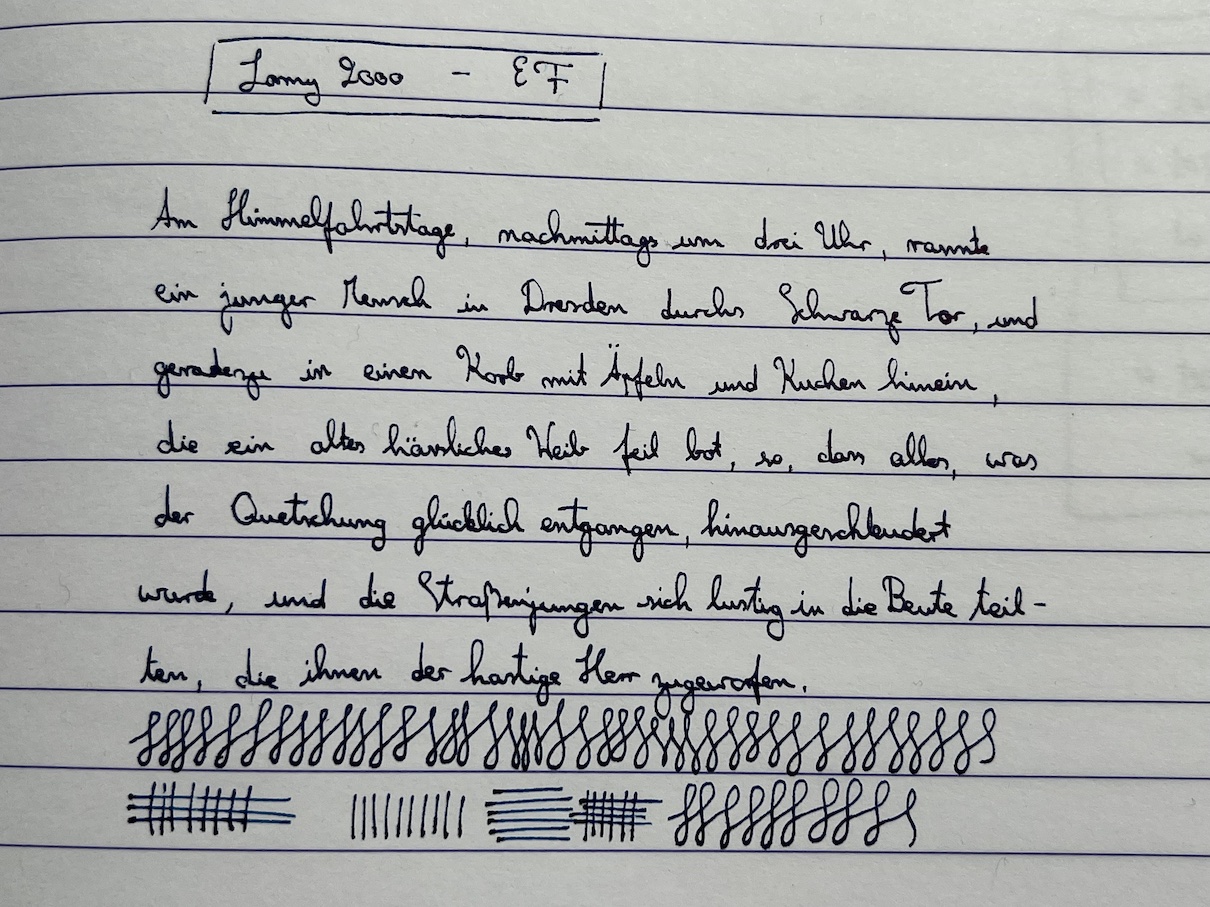 Lamy 2000 - EF
Am Himmelfahrtstage, nachmittags um drei Uhr, rannte
ein junger Mensch in Dresden durchs Schwarze Tor, und
geradezu in einen Korb mit Äpfeln und Kuchen hinein,
die ein altes hässliches Weib feil bot, so, dass alles, was
der Quetschung glücklich entgangen, hinausgeschleudert
wurde, und die Straßenjungen sich lustig in die Beute teil-
ten, die ihnen der hastige Herr zugeworfen.